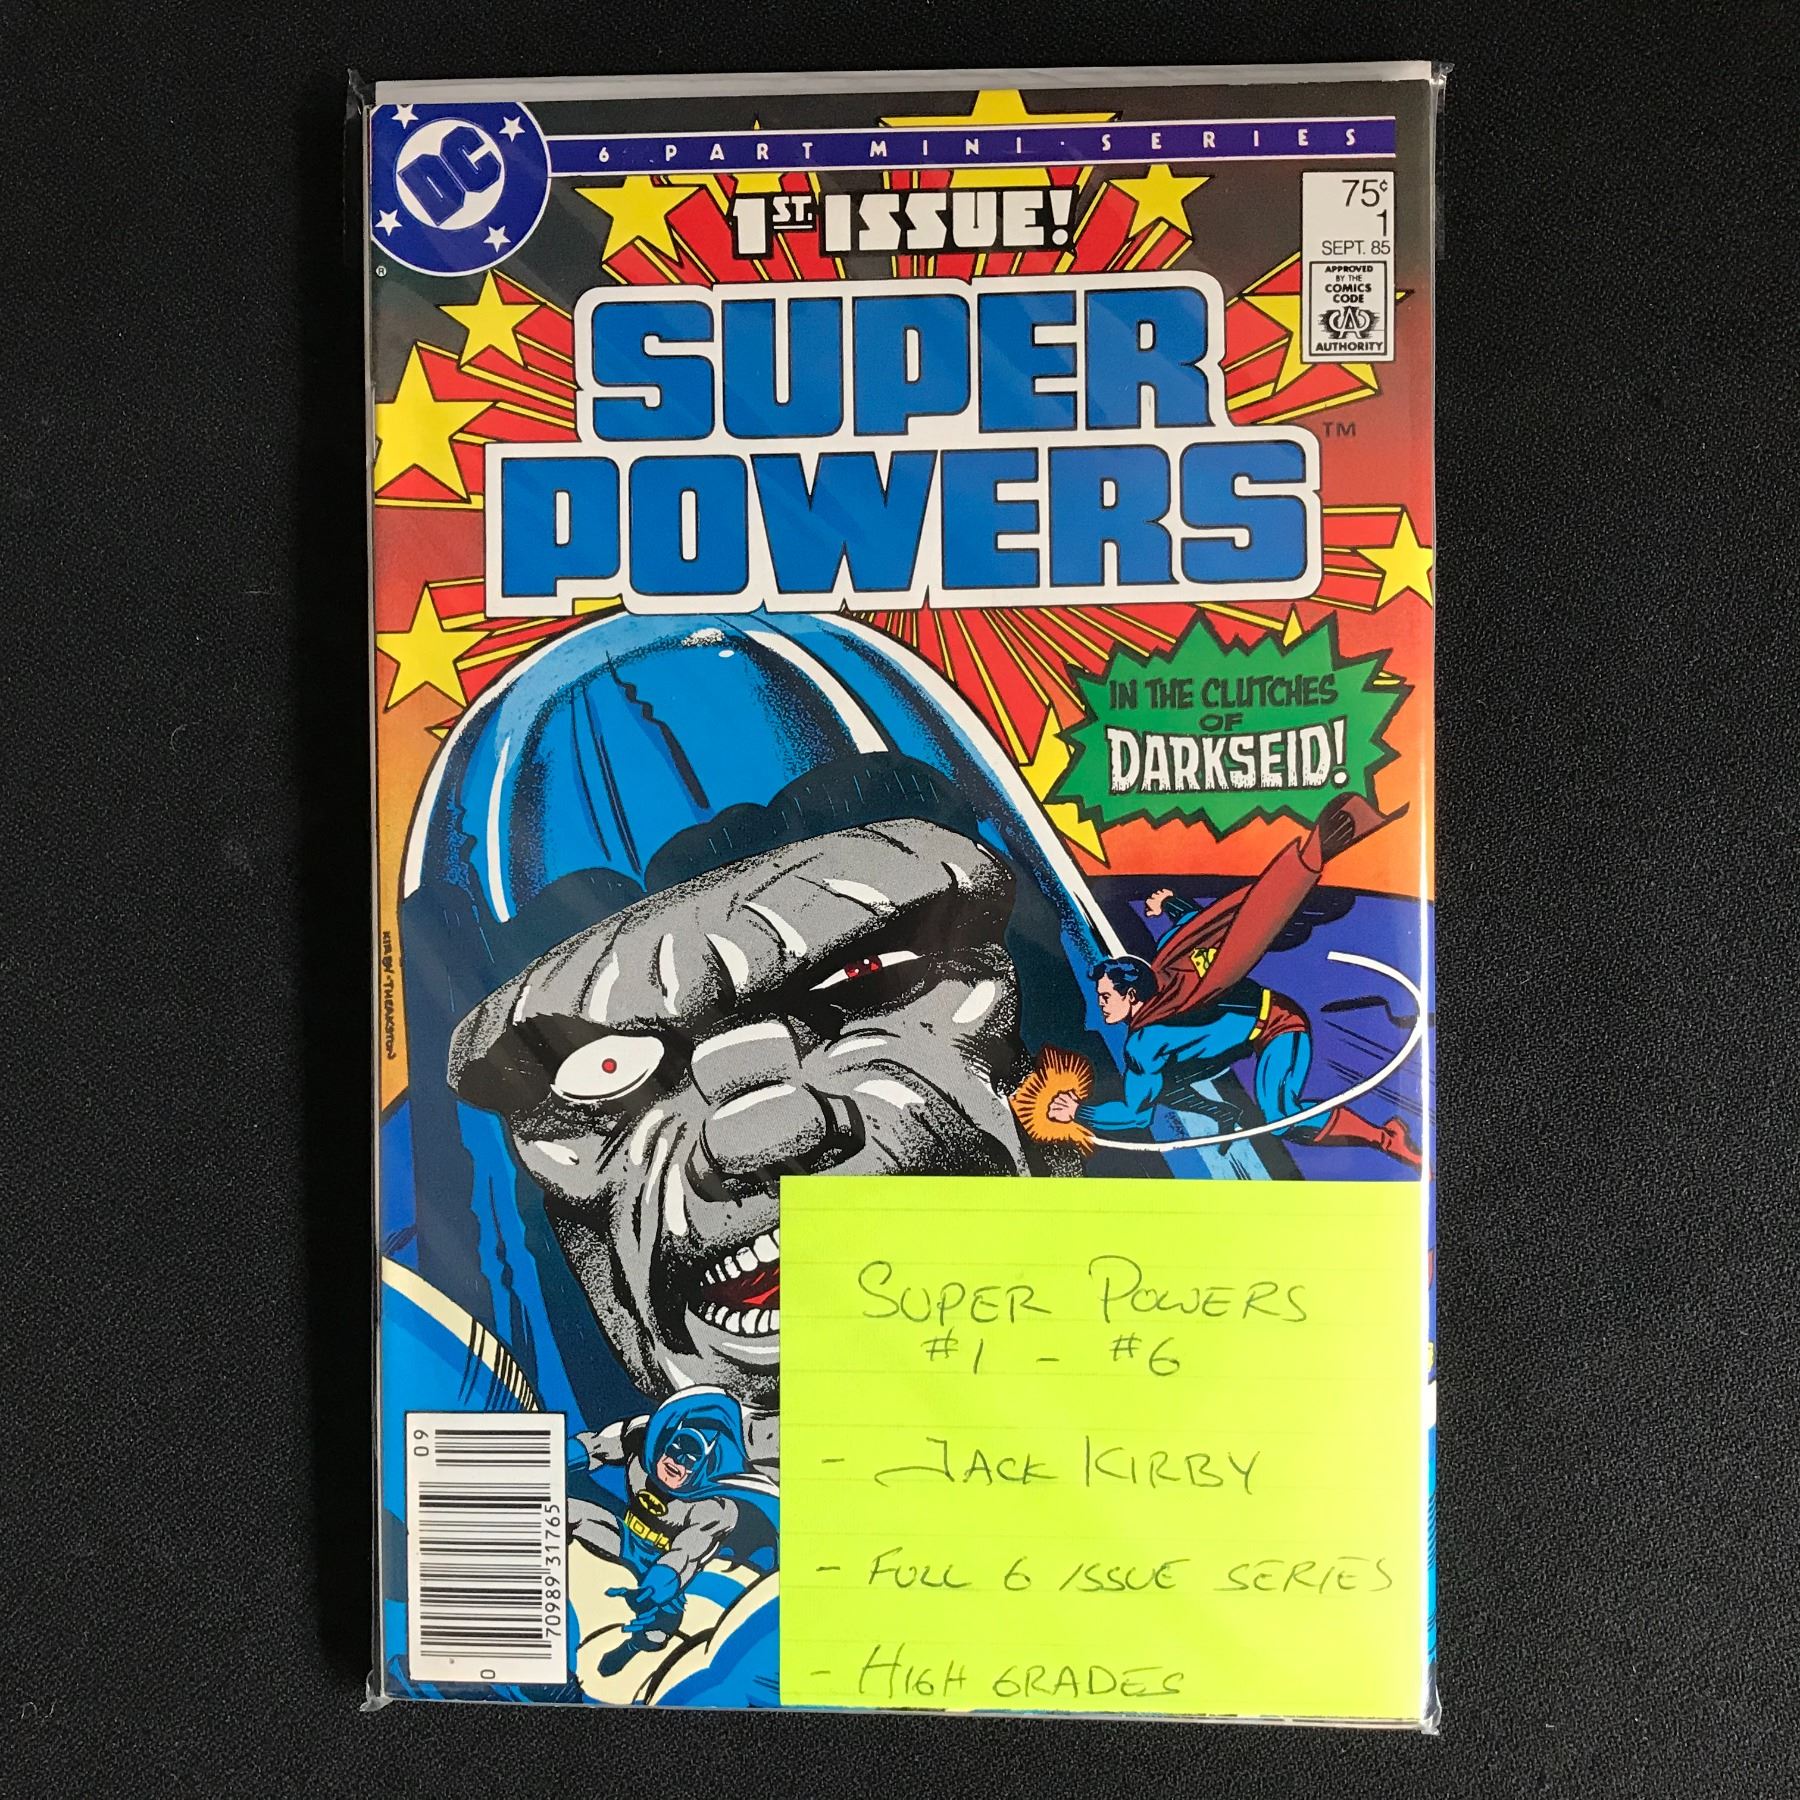 DC
6 PART MINI-SERIES
1ST. ISSUE!
75¢
1
SEPT. 85
APPROVED
BY THE
COMICS
CODE
CA
AUTHORITY
®
SUPER
POWERS
TM
IN THE CLUTCHES
OF
DARKSEID!
KIRBY·THEAKSTON
SUPER POWERS
#1 - #6
- JACK KIRBY
- FULL 6 ISSUE SERIES
- HIGH GRADES
09
70989 31765
0